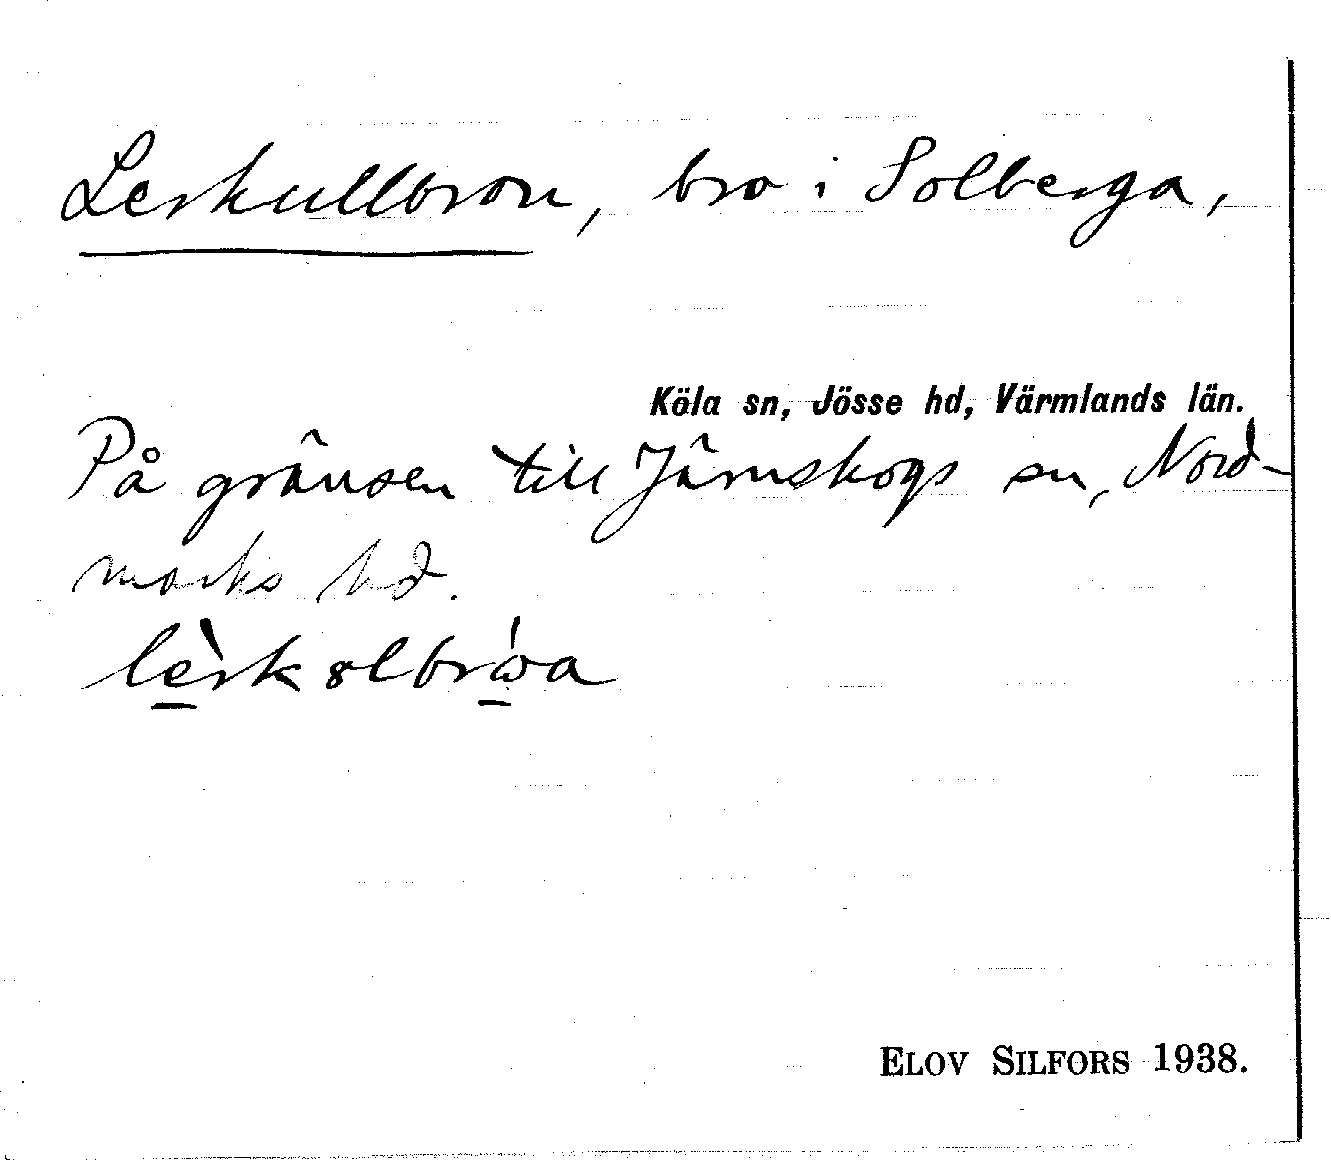 Lerkullbron, bro i Solberga,
Köla sn, Jösse hd, Värmlands län.
På gränsen till Järnskogs sn, Nord-
marks hd.
ELOV SILFORS 1938.